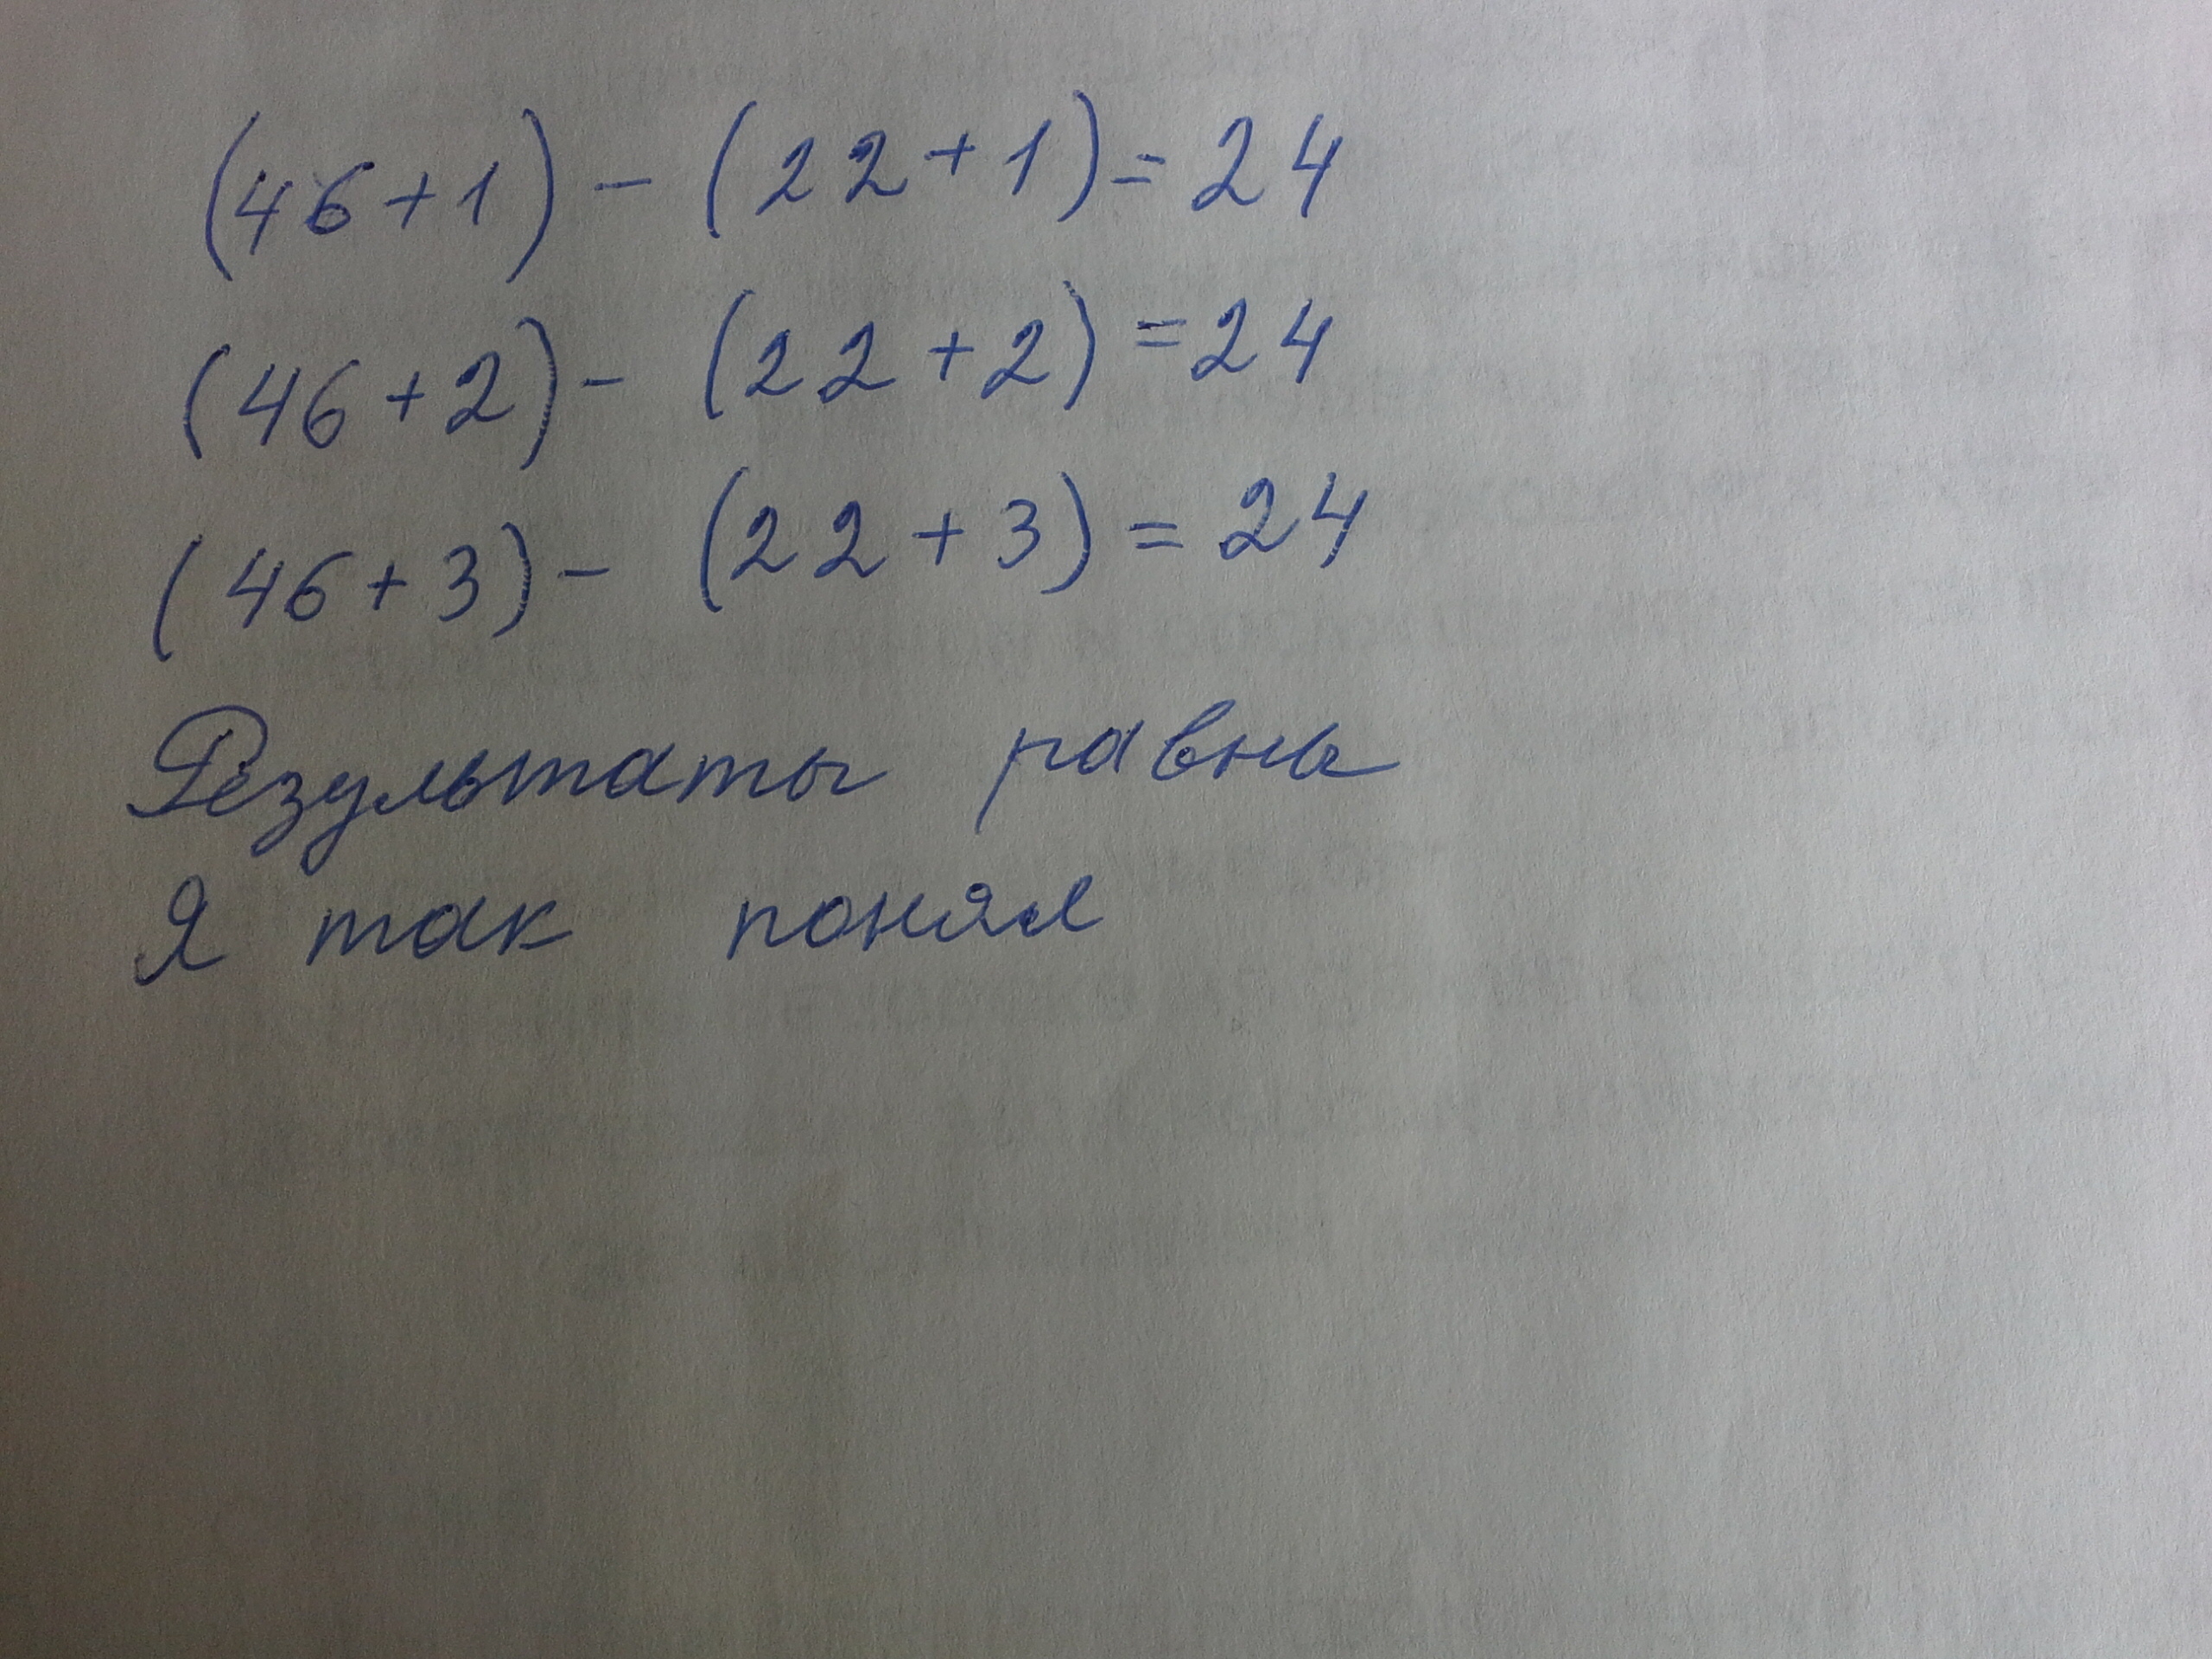 (46+1) - (22+1) = 24
(46+2) - (22+2) = 24
(46+3) - (22+3) = 24
Результаты равны
Я так понял